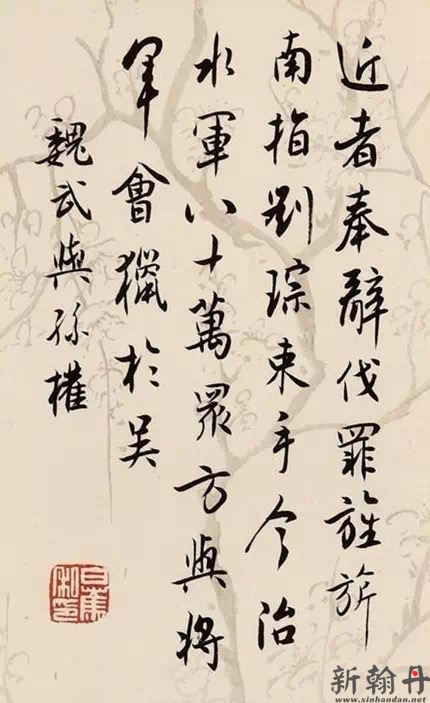 近者奉辭伐罪旌旂
南指劉琮束手今治
水軍八十萬眾方與將
軍會獵於吳
魏武與孫權
白蕉私印
新翰丹
www.xinhandan.net